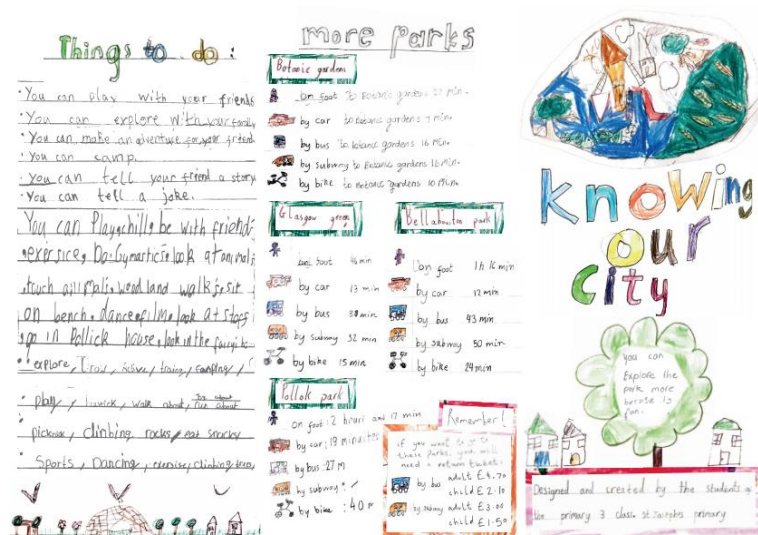 Things to do :
• You can play with your friends
• You can explore with your family
• You can make an adventure for your friend
• You can camp.
• You can tell your friend a story
• You can tell a joke.
You can Play, chill, be with friends
exersice, Do Gymnastics, look at animals
touch animals, woodland walks, sit
on bench, dance, film, look at
go in Pollick house, look in the
• explore, camping,
• play, walk about, run about
picknick, climbing rocks, eat snacks
Sports, Dancing, exercise, climbing trees,
more parks
Botanic gardens
on foot to Botanic gardens 27 min.
by car to Botanic gardens 7 min.
by bus to Botanic gardens 16 min.
by subway to Botanic gardens 16 min.
by bike to Botanic gardens 10 Min.
Glasgow green
foot min
by car 13 min
by bus 38 min
by subway 32 min
by bike 15 min
Bellahouton park
on foot 1h 16 min
by car 12 min
by bus 43 min
by subway 50 min
by bike 24 min
Pollok park
on foot: 2 hours and 17 min
by car: 18 minutes
by bus: 27 M
by subway: /
by bike : 40 m
Remember!
if you want to go to
these parks, you will
need a return ticket.
by bus adult £4.70
child £2.10
by subway adult £3.00
child £1.50
knowing
our
city
you can
Explore the
park more
because is
fun.
Designed and created by the students of
the primary 3 class. St Josephs primary